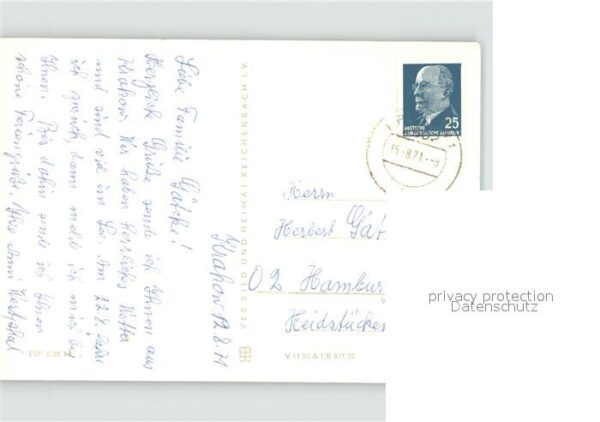 Krakow 12.8.71
Liebe Familie Gätche!
Herzliche Grüße sende ich Ihnen aus
Krakow. Wir haben herrliches Wetter
und sind viel im See. Am 22.8.
ich zurück, dann melde ich mich bei
Ihnen. Bis dahin sind ich Ihnen
schöne Feriengrüße. Ihre Anni Westphal
EVP 0,25 M
VEB BILD UND HEIMAT REICHENBACH I. V.
V 11 50 A 1/B 877/70
25
DEUTSCHE
DEMOKRATISCHE REPUBLIK
15-8.71.-8
Herrn
Herbert Gät
02 Hambur
Heidstücken
privacy protection
Datenschutz